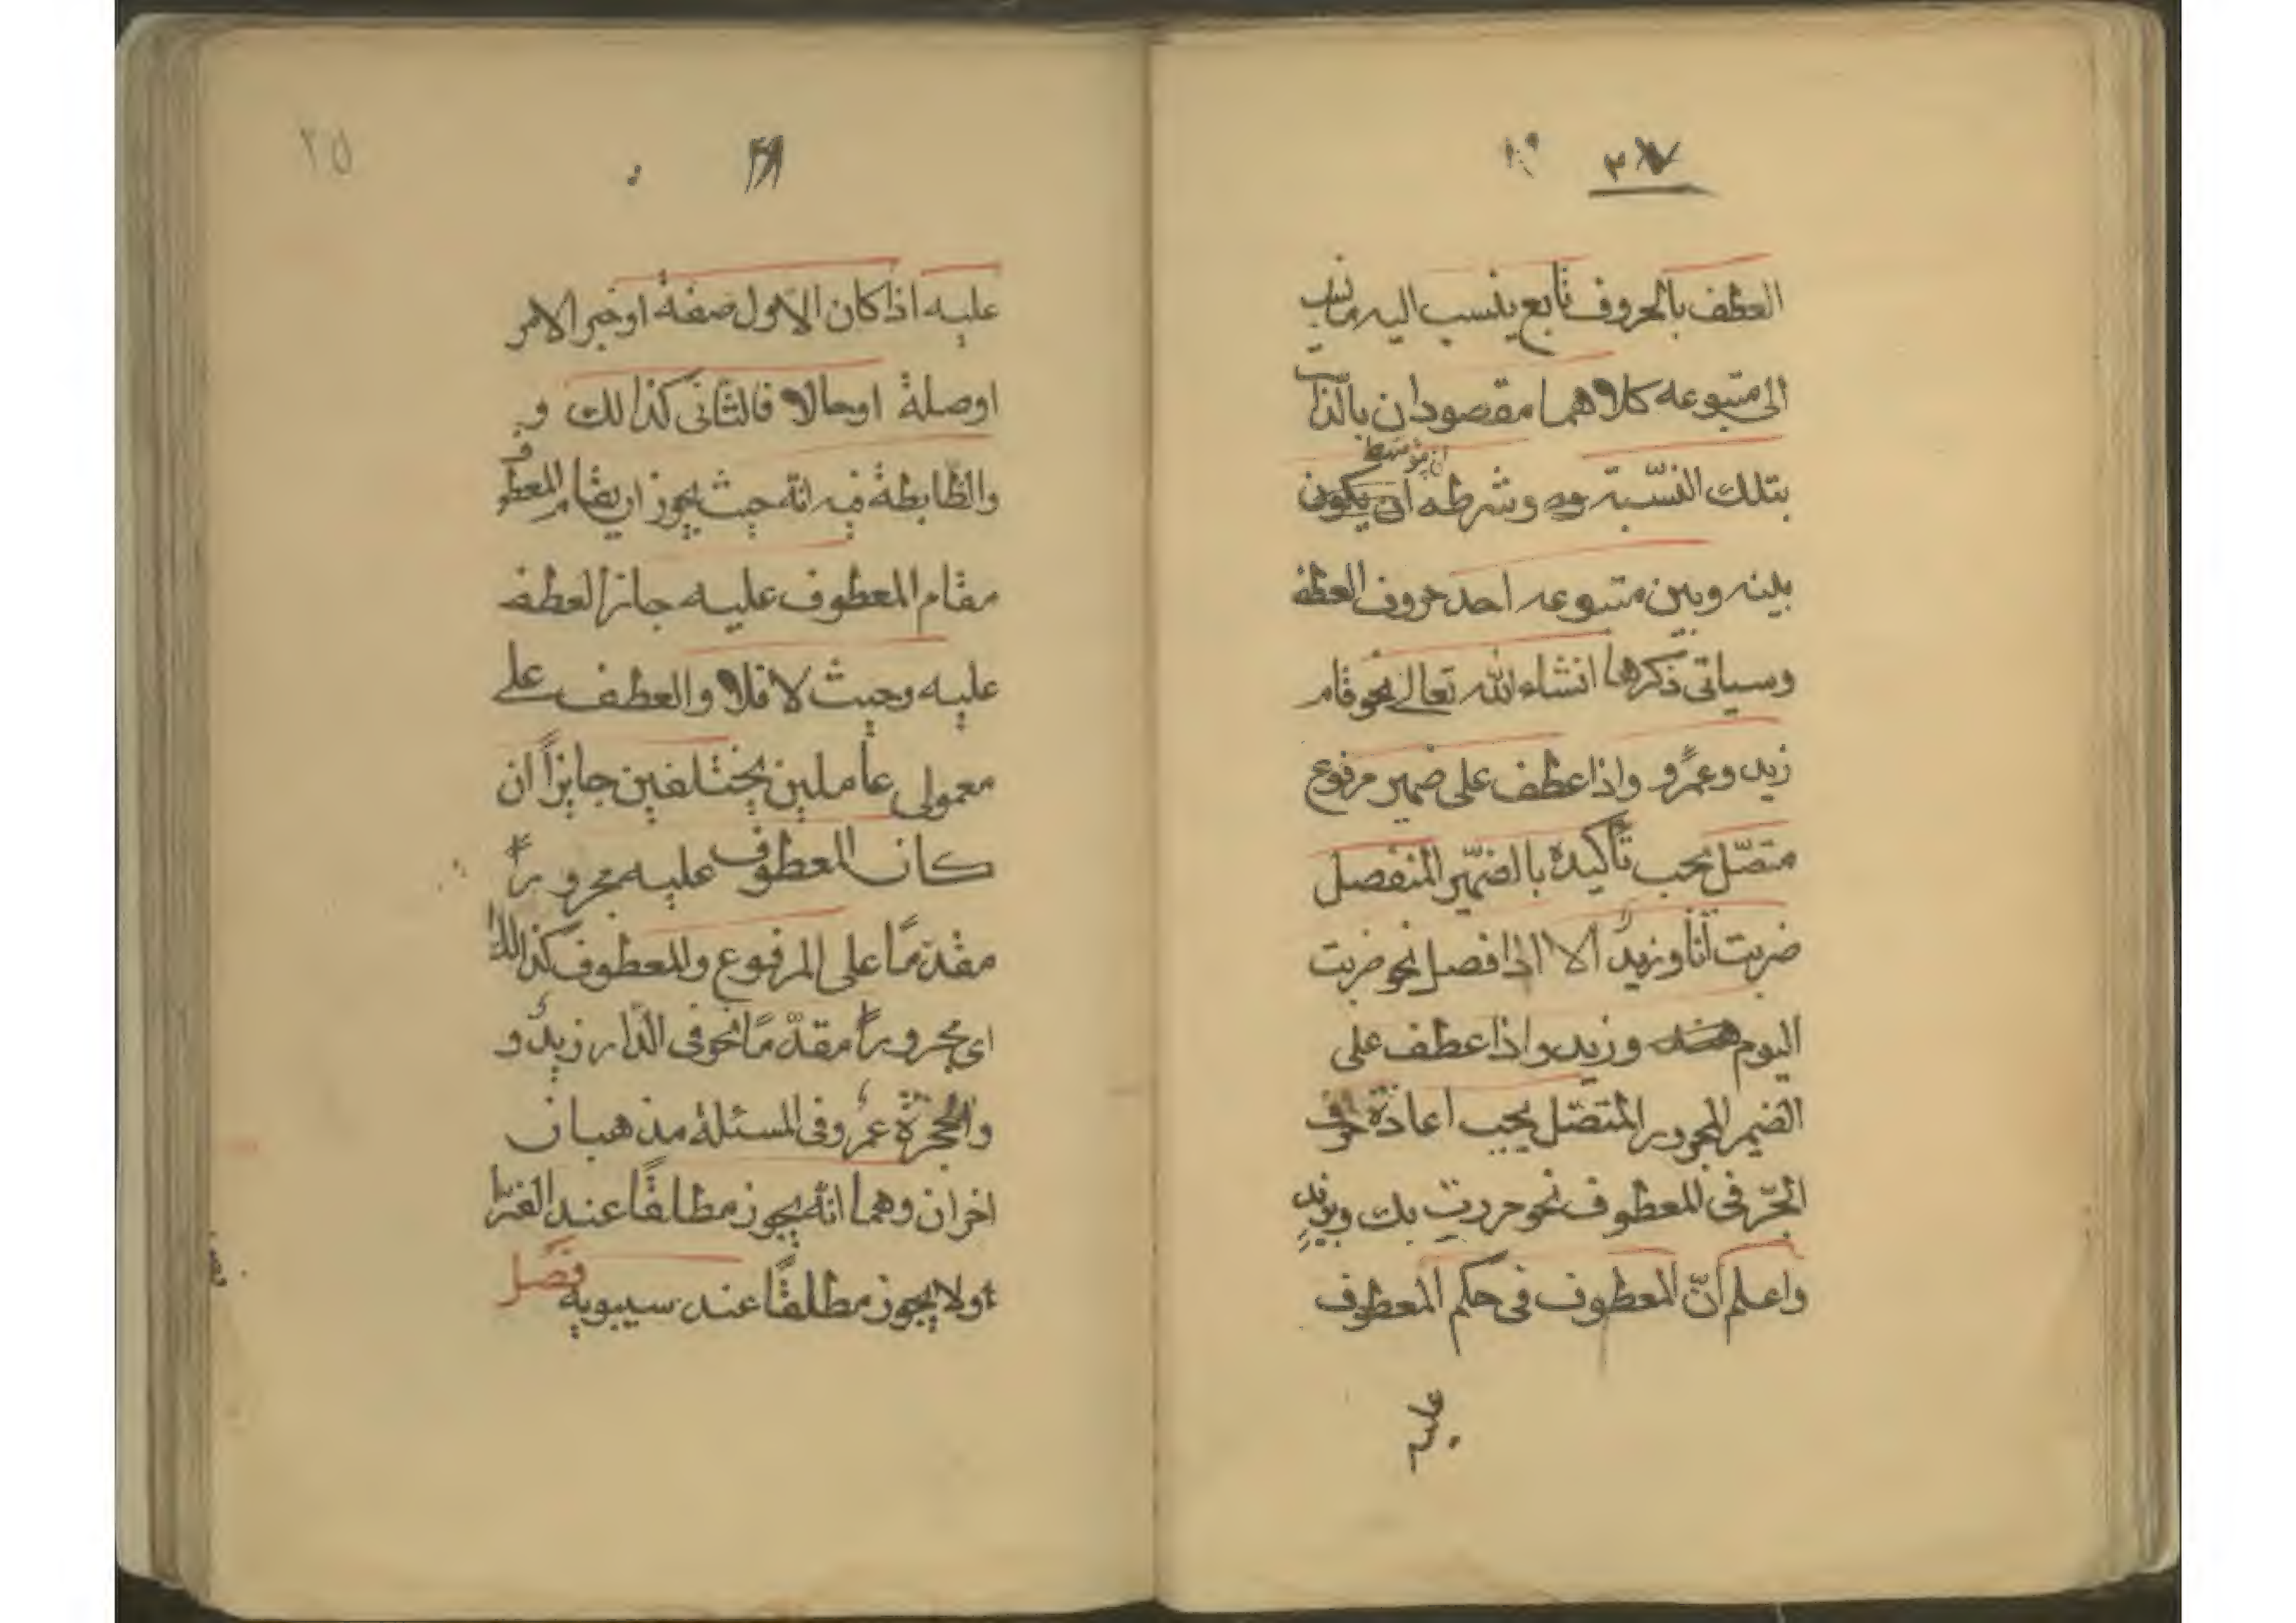 العطف بالحروف تابع ينسب اليه ما نسب
الى متبوعه كلاهما مقصودان بالذات
بتلك النسبة وشرطه ان يتوسط
بينه وبين متبوعه احد حروف العطف
وسياتى ذكرها انشاء الله تعالى نحو قام
زيد وعمرو واذا عطف على ضمير مرفوع
متصّل يجب تأكيده بالضمّير المنفصل
ضربت أنا وزيدٌ الا اذا فصل نحو ضربت
اليوم وزيد واذا عطف على
الضمير المجرور المتصّل يجب اعادة حرف
الجّر فى المعطوف نحو مررت بك وبزيدٍ
واعلم أنّ المعطوف فى حكم المعطوف
عليه
٢٥
عليه اذا كان الاول صفة او خبر الامر
اوصلة اوحالا فالثانى كذالك و
والظابطة فيه انّه حيث يجوز ان يقام المعطوف
مقام المعطوف عليه جاز العطف
عليه وحيث لا فلا والعطف على
معمولى عاملين يختلفين جايزاً ان
كان المعطوف عليه مجروراً
مقدّمًا على المرفوع والمعطوف كذالك
اى مجروراً مقدّمًا نحو فى الدّار زيدٌ و
والحجرة عمرو فى المسئلة مذهبان
اخران وهما انّه يجوز مطلقًا عند الفرّا
ء ولا يجوز مطلقًا عند سيبويه فصل